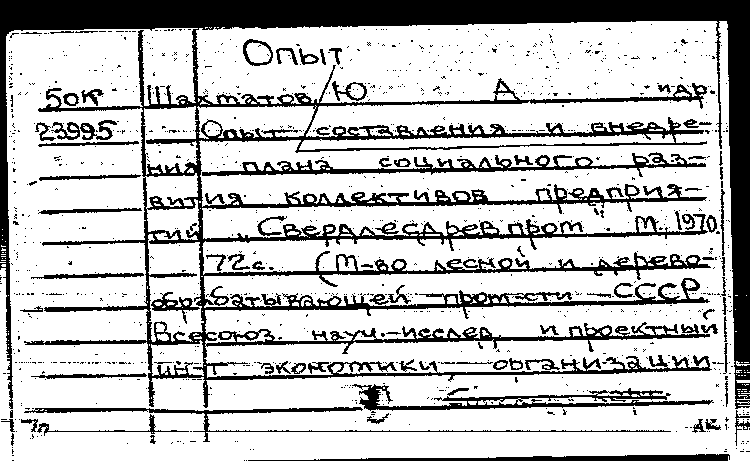 Опыт
50К Шахматов, Ю А и др.
23995 Опыт составления и внедре-
ния плана социального раз-
вития коллективов предприя-
тий „Свердлесдревпром“. М., 1970
72 с. (М-во лесной и дерево-
обрабатывающей пром-сти СССР
Всесоюз. науч.-исслед. и проектный
ин-т экономики, организации